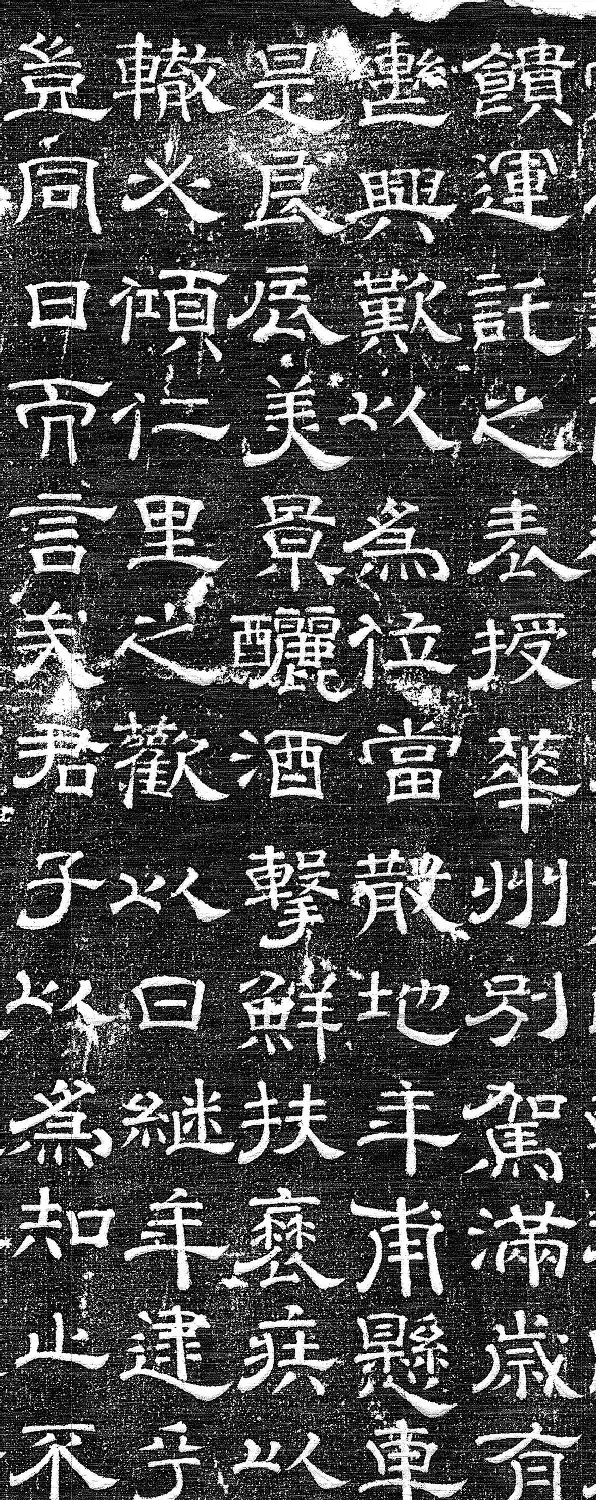 饋運託之表授華州別駕滿歲有
興歎以為位當散地年甫懸車
是良辰美景釃酒擊鮮扶衰疾以
轍必傾仁里之歡以日繼年逮乎
豈同日而言哉君子以為知止不